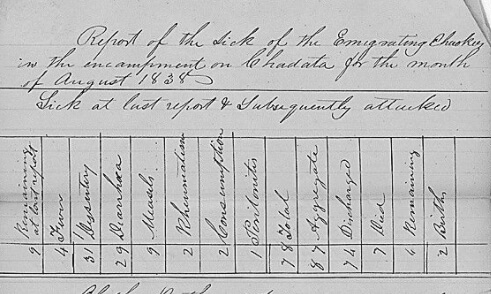 Report of the Sick of the Emigrating Chaokey
in the encampment on Chadata for the month
of August 1838
Sick at last report & Subsequently attacked
9 Remaining
at last report
4 Fever
31 Dysentery
29 Diarrhea
9 Measels
2 Rheumatism
2 Consumption
1 Peritonitis
78 Total
87 Aggregate
74 Discharged
7 Died
6 Remaining
2 Births